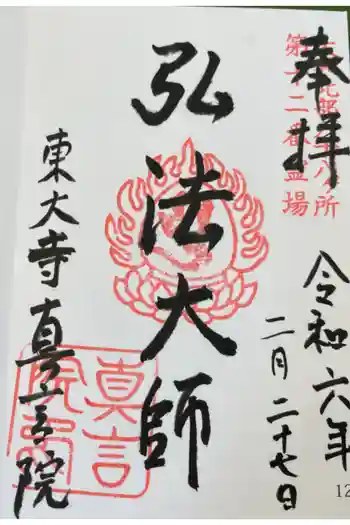 奉拝
第十二番霊場
令和六年
二月二十七日
弘法大師
東大寺真言院
真言院
12